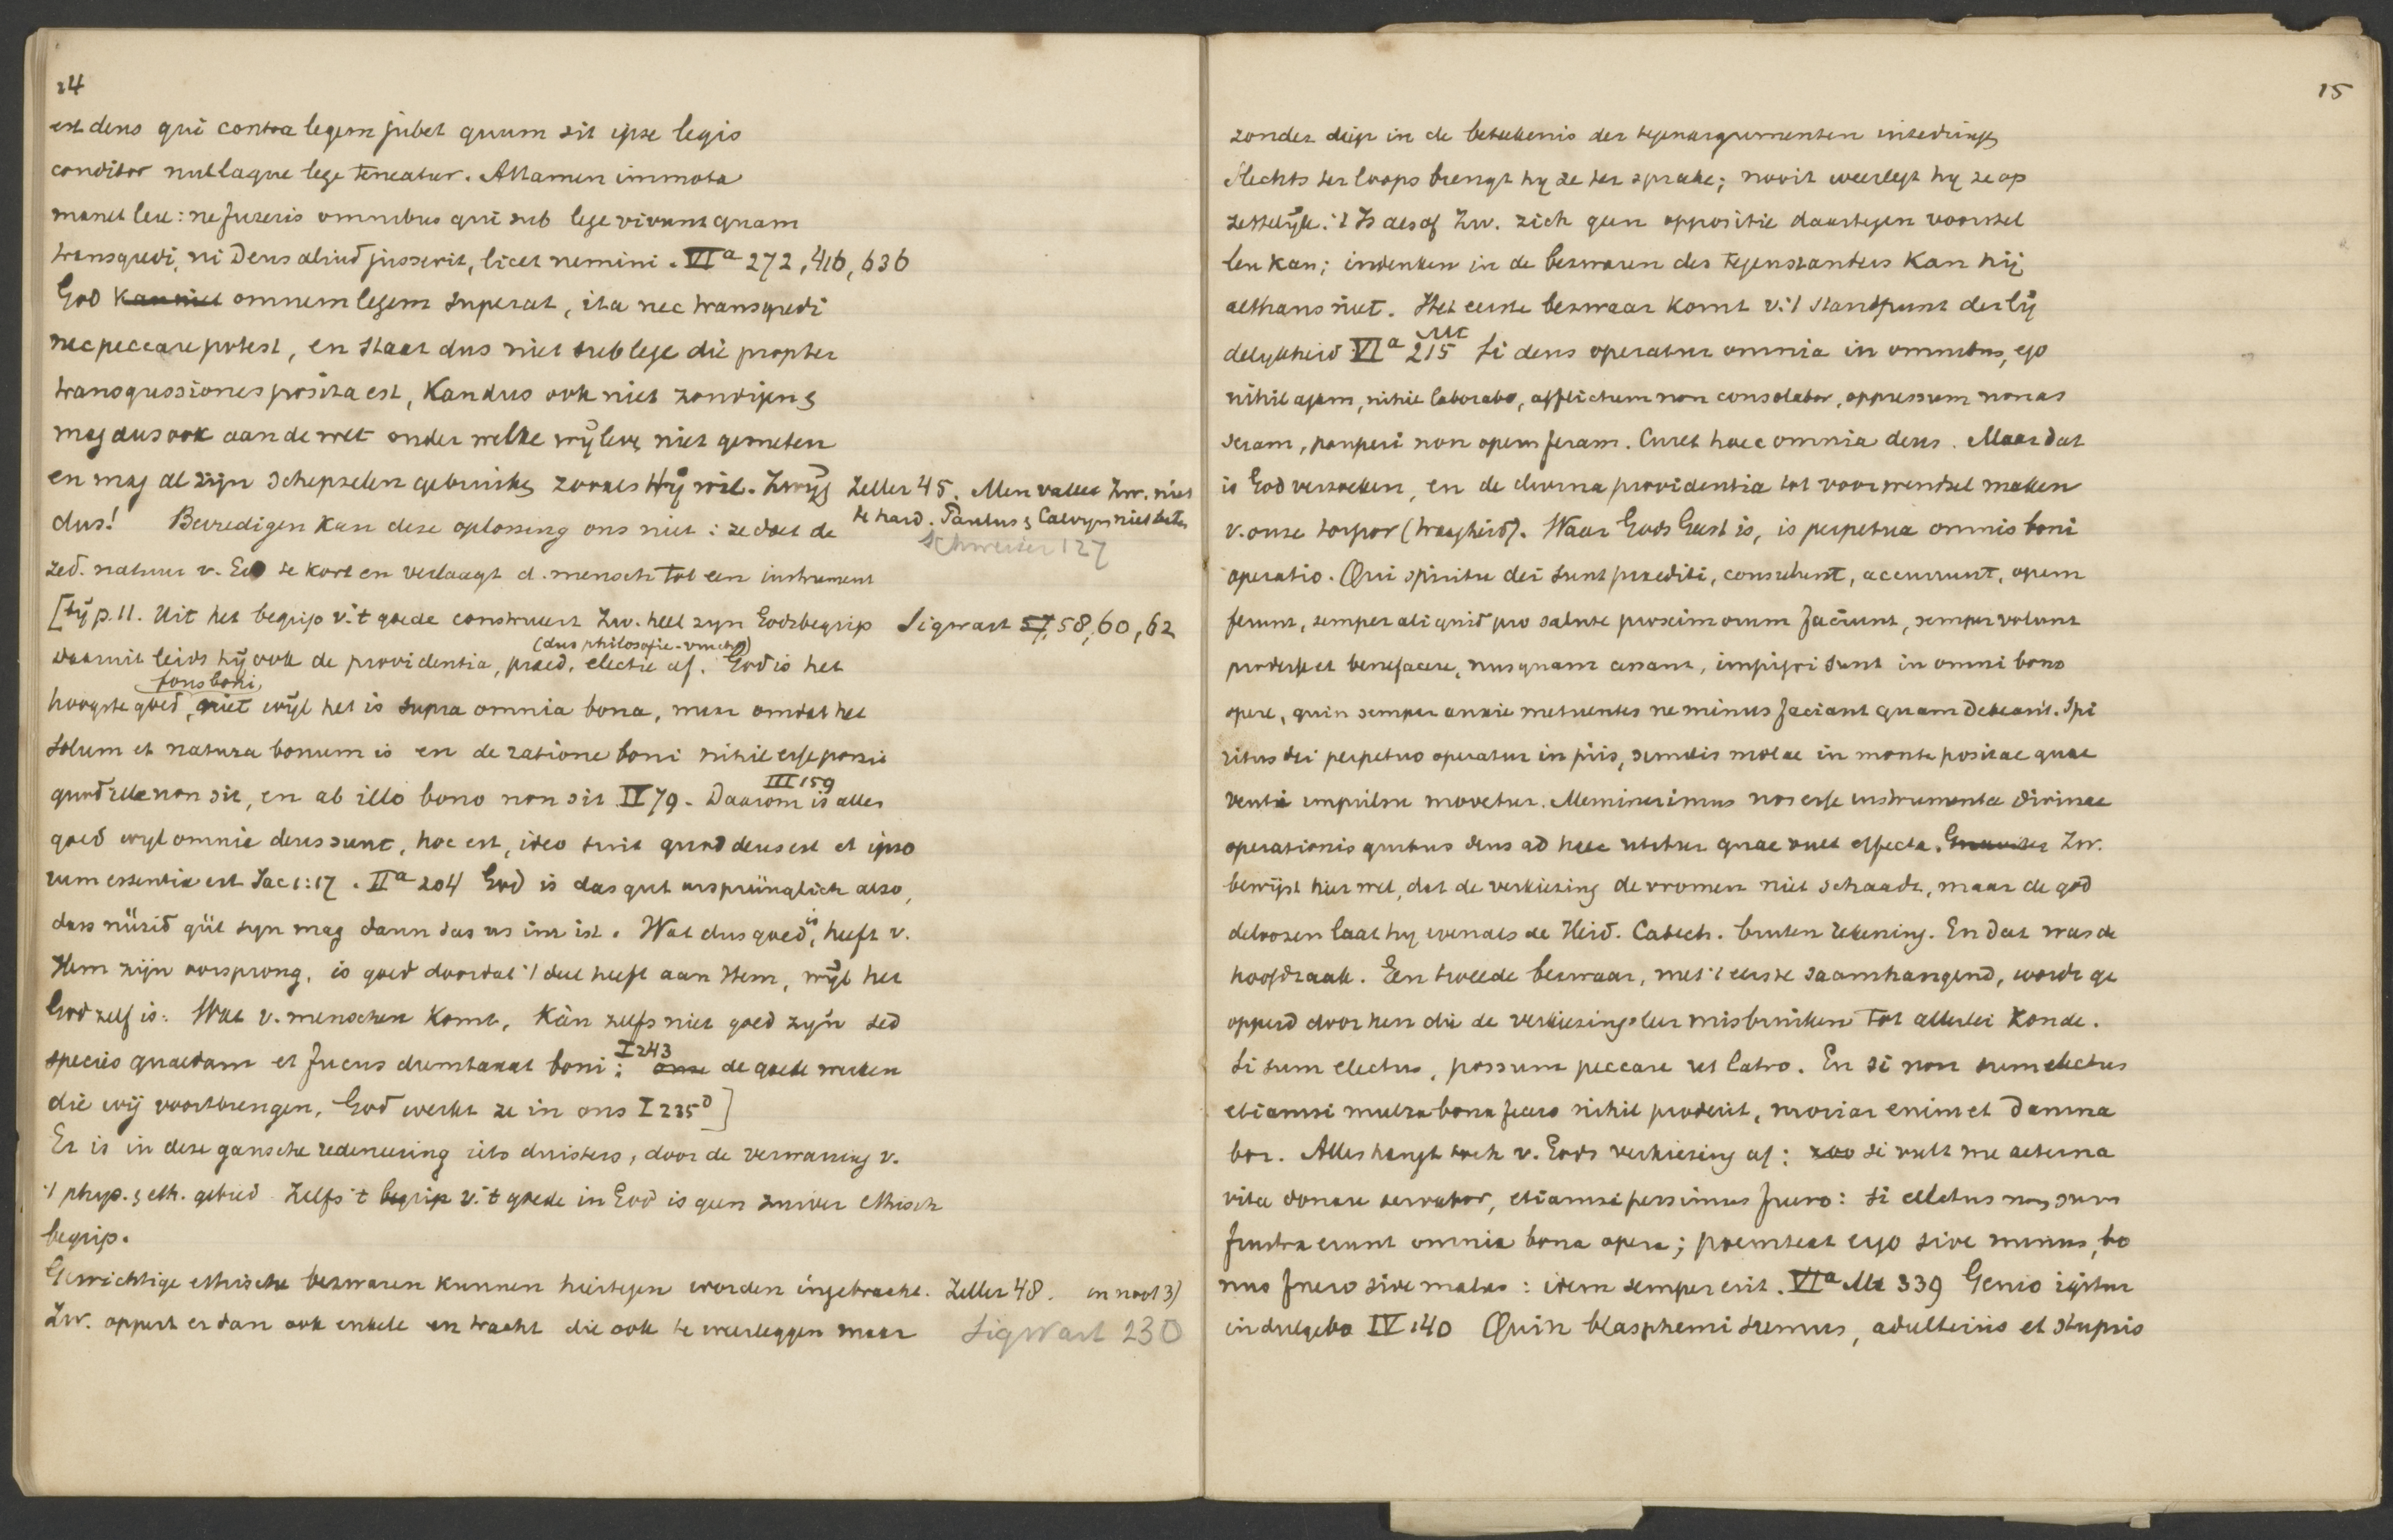 14
est deus qui contra legem jubet quum sit ipse legis
conditor nullaque lege teneatur. Attamen immota
manet lex: ne fuzeris omnibus qui sub lege vivunt quam
transgredi, ni Deus aliud jusserit, licet nemini. VIa 272, 416, 636
God kan niet omnem legem superat, ita nec transgredi
nec peccare potest, en staat dus niet sub lege die propter
transgressiones posita est, kan dus ook niet zondigen &
mag dus ook aan de wet onder welke wij leven niet gemeten
en mag al zijn schepselen gebruiken zooals Hij wil. Zwijg
dus! Bevredigen kan deze oplossing ons niet: ze doet de
Zeller 45. Men valle Zw. niet
te hard. Paulus & Calvijn niet beter
Schweizer 127
zed. natuur v. God te kort en verlaagt d. mensch tot een instrument
[bij p. 11. Uit het begrip v. 't goede construeert Zw. heel zyn Godsbegrip
Sigwart 57, 58, 60, 62
(dus philosofie-vrucht)
daaruit leidt hij ook de providentia, praed, electie af. God is het
fons boni,
hoogste goed, niet wijl het is supra omnia bona, maar omdat het
solum et natura bonum is en de ratione boni nihil esse possit
III 159
quod ille non sit, en ab illo bono non sit IV 79. Daarom is alles
goed wyl omnia deus sunt, hoc est, ideo sunt quod deus est et ipso
rum essentia est Jac 1:17. IIa 204 God is das gut ursprünglich also,
dass nüzid güt syn mag dann das us im ist. Wat dus goed is, heeft v.
Hem zijn oorsprong, is goed doordat 't deel heeft aan Hem, wijl het
God zelf is: Wat v. menschen komt, kàn zelfs niet goed zyn sed
I 243
species quaedam et fucus dumtaxat boni; onze de goede werken
die wij voortbrengen, God werkt ze in ons I 235]
Er is in deze gansche redeneering iets duisters, door de verwarring v.
't phys. & eth. gebied Zelfs 't begrip v. 't goede in God is geen zuiver ethisch
begrip.
Gewichtige ethische bezwaren kunnen hiertegen worden ingebracht. Zeller 48. en noot 3)
Zw. oppert er dan ook enkele en tracht die ook te weerleggen maar
Sigwart 230
15
zonder diep in de beteekenis der tegenargumenten intedringen
slechts terloops brengt hy ze ter sprake; nooit weerlegt hy ze op
zettelijk. 't Is alsof Zw. zich geen oppositie daartegen voorstel
len kan; indenken in de bezwaren des tegenstanders kan hij
althans niet. Het eerste bezwaar komt v. 't standpunt der lij
delykheid VIa Mt 215 Si deus operatur omnia in omnibus, ego
nihil agam, nihil laborabo, afflictum non consolabor, oppressum non as
seram, pauperi non opem feram. Curet haec omnia deus. Maar dat
is God verzoeken, en de divina providentia tot voorwendsel maken
v. onze torpor (traagheid). Waar Gods Geest is, is perpetua omnis boni
operatio. Qui spiritu dei sunt praediti, consulunt, accurrunt, opem
ferunt, semper aliquid pro salute proximorum faciunt, semper volunt
prodesse et benefacere, nusquam cessant, impigri sunt in omni bono
opere, quin semper anxie metuentes ne minus faciant quam debeant. Spi
ritus dei perpetuo operatur in piis, similis molae in monte positae quae
venti impulsu movetur. Meminerimus nos esse instrumenta divinae
operationis quibus deus ad haec utitur quae vult effecta. Zw.
bewijst hier wel, dat de verkiezing de vromen niet schaadt, maar de god
deloozen laat hij evenals de Heid. Catech. buiten rekening. En dat was de
hoofdzaak. Een tweede bezwaar, met 't eerste saamhangend, wordt ge
opperd door hen die de verkiezingsleer misbruiken tot allerlei zonde.
Si sum electus, possum peccare ut latro. En si non sum electus
etiamsi multa bona fecero nihil proderit, moriar enim et damna
bor. Alles hangt toch v. Gods verkiezing af: zoo si vult me aeterna
vita donare servabor, etiamsi pessimus fuero: si electus non sum
frustra erunt omnia bona opera; proinde ergo sive minus, bo
nus fuero sive malus: idem semper erit. VIa Mt 339 Genio igitur
indulgebo IV 140 Quin blasphemi sumus, adulteriis et stupris